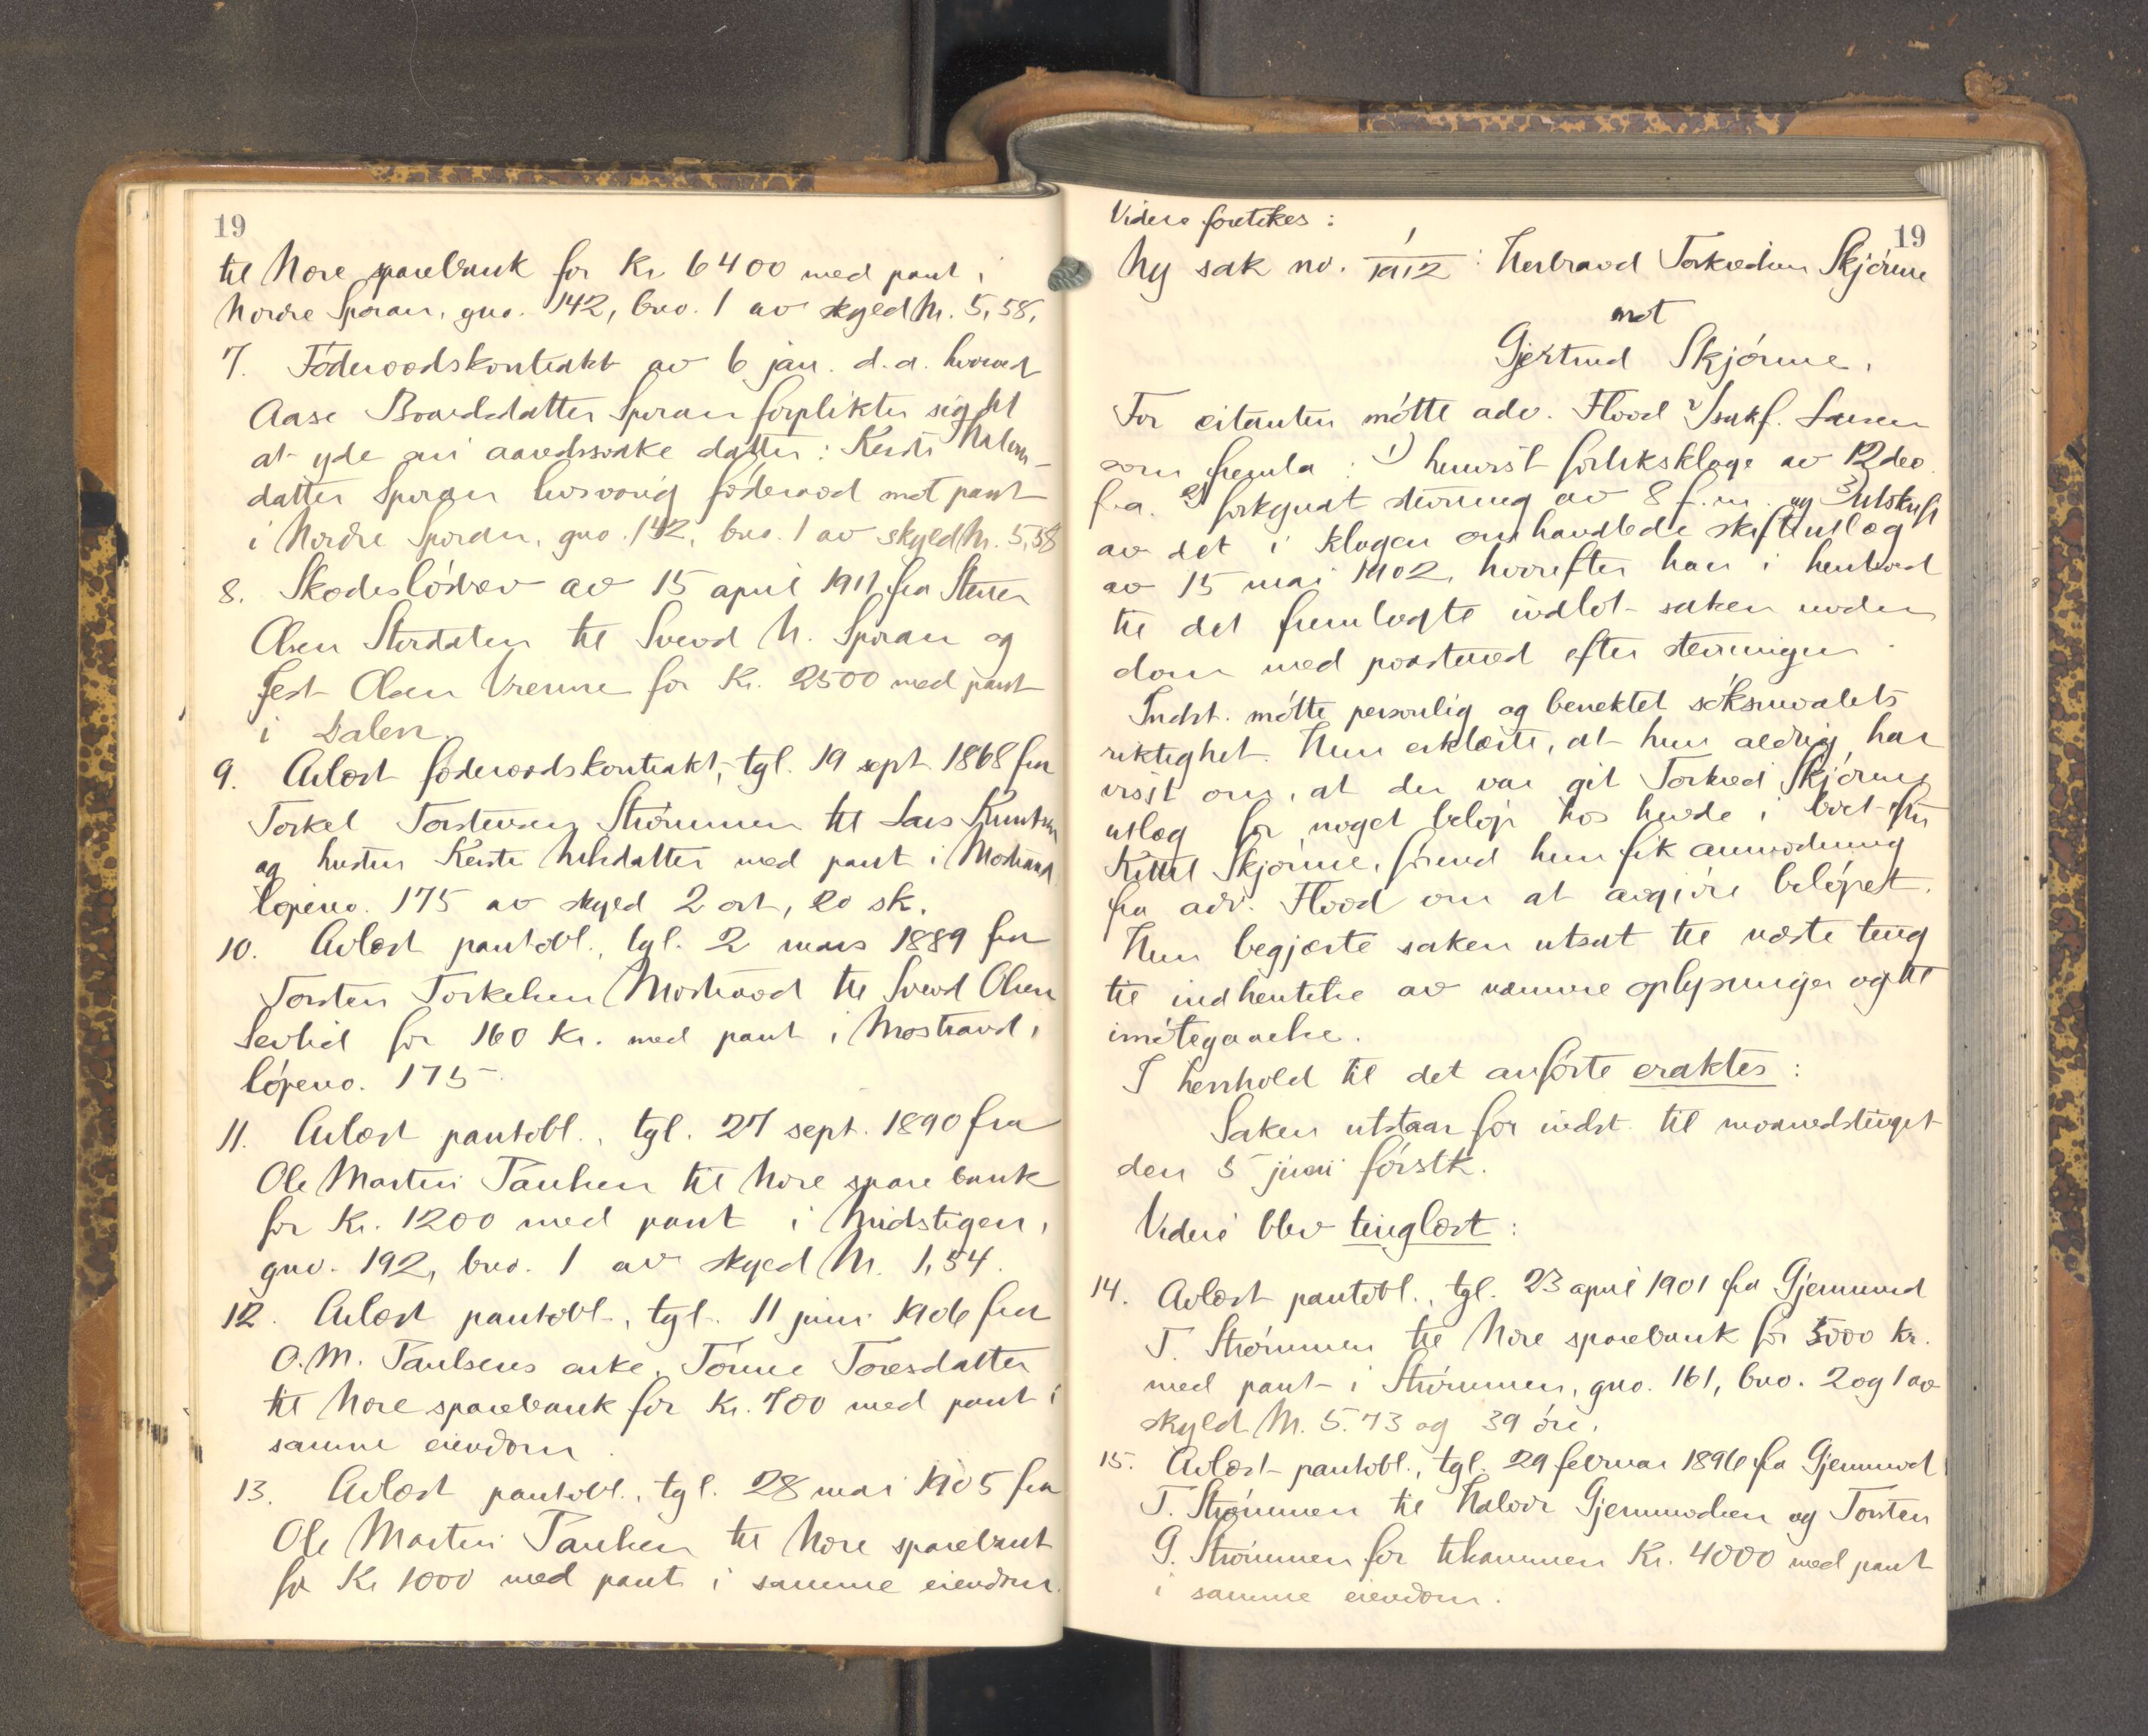 19
til Nore sparebank for Kr. 6400 med pant i
Nordre Sporan, gno. 142, bno. 1 av skyld M. 5,58.
7. Föderaadskontrakt av 6 jan. d.a. hvorved
Aase Baardsdatter Sporan forplikter sig til
at yde sin aandssvake datter: Kersti Halvors-
datter Sporan livsvarig föderaad mot pant
i Nordre Sporan, gno. 142, bno. 1 av skyld M. 5,58
8. Skadeslösbrev av 15 april 1911 fra Steiner
Olsen Stordalen til Sveod N. Sporan og
Jest Olsen Vrenne for Kr. 2500 med pant
i Dalen.
9. Avlæst föderaadskontrakt, tgl. 19 sept. 1868 fra
Torkel Torstensen Strömmen til Lars Knutsen
og hustru Kersti Nilsdatter med pant i Mostrand
löpeno. 175 av skyld 2 ort, 20 sk.
10. Avlæst pantobl., tgl. 2 mars 1889 fra
Torsten Torkelsen Mostraad til Sveod Olsen
Sevlid for 160 Kr. med pant i Mostraad,
löpeno. 175
11. Avlæst pantobl., tgl. 27 sept. 1890 fra
Ole Martin Paulsen til Nore sparebank
for Kr. 1200 med pant i Midstigen,
gno. 192, bno. 1 av skyld M. 1,54.
12. Avlæst pantobl., tgl. 11 juni 1906 fra
O.M. Paulsens enke, Tönne Toresdatter
til Nore sparebank for Kr. 700 med pant i
samme eiendom.
13. Avlæst pantobl., tgl. 28 mai 1905 fra
Ole Martin Paulsen til Nore sparebank
for Kr 1000 med pant i samme eiendom.
Videre foretokes:
19
Ny sak no. 1/1912: Herbrand Torkildsen Skjönne
mot
Gjertrud Skjönne.
For citanten mötte adv. Flood v/ sakf. Larsen
som fremla: 1) henvist forliksklage av 12 dec.
f.a. 2) forkyndt stevning av 8 f.m. og 3) utskrift
av det i klagen omhandlede skifteutlæg
av 15 mai 1902, hvorefter han i henhold
til det fremlagte indlot saken under
dom med paastand efter stevningen.
Indst. mötte personlig og benektet söksmaalets
riktighet. Hun erklærte, at hun aldrig har
visst om, at der var git Torkild Skjönne
utlæg for noget belöp hos hende i boet efter
Kittil Skjönne, förend hun fik anmodning
fra adv. Flood om at avgjöre belöpet.
Hun begjærte saken utsat til næste ting
til indhentelse av nærmere oplysninger og til
imötegaaelse.
I henhold til det anförte eraktes:
Saken utstaar for indst. til maanedstinget
den 5 juni förstk.
Videre blev tinglæst:
14. Avlæst pantobl., tgl. 23 april 1901 fra Gjermund
T. Strömmen til Nore sparebank for 5000 kr.
med pant i Strömmen, gno. 161, bno. 2 og 1 av
skyld M. 5.73 og 39 öre.
15. Avlæst pantobl., tgl. 29 februar 1896 fra Gjermund
T. Strömmen til Halvor Gjermundsen og Torsten
G. Strömmen for tilsammen Kr. 4000 med pant
i samme eiendom.